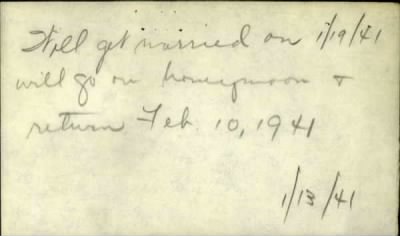 Will get married on 1/19/41
will go on honeymoon +
return Feb. 10, 1941
1/13/41